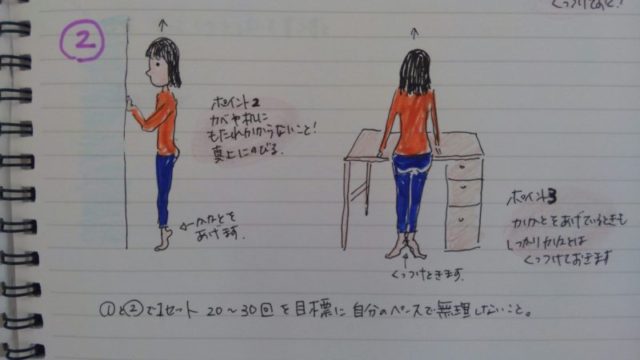 くっつけておく!
②
ポイント2
カベや机に
もたれかからないこと!
真上にのびる.
←かかとを
あげます.
ポイント3
かかとをあげているときも
しっかりかかとは
くっつけておきます
くっつけときます.
①と②で1セット 20~30回を目標に 自分のペースで無理しないこと。